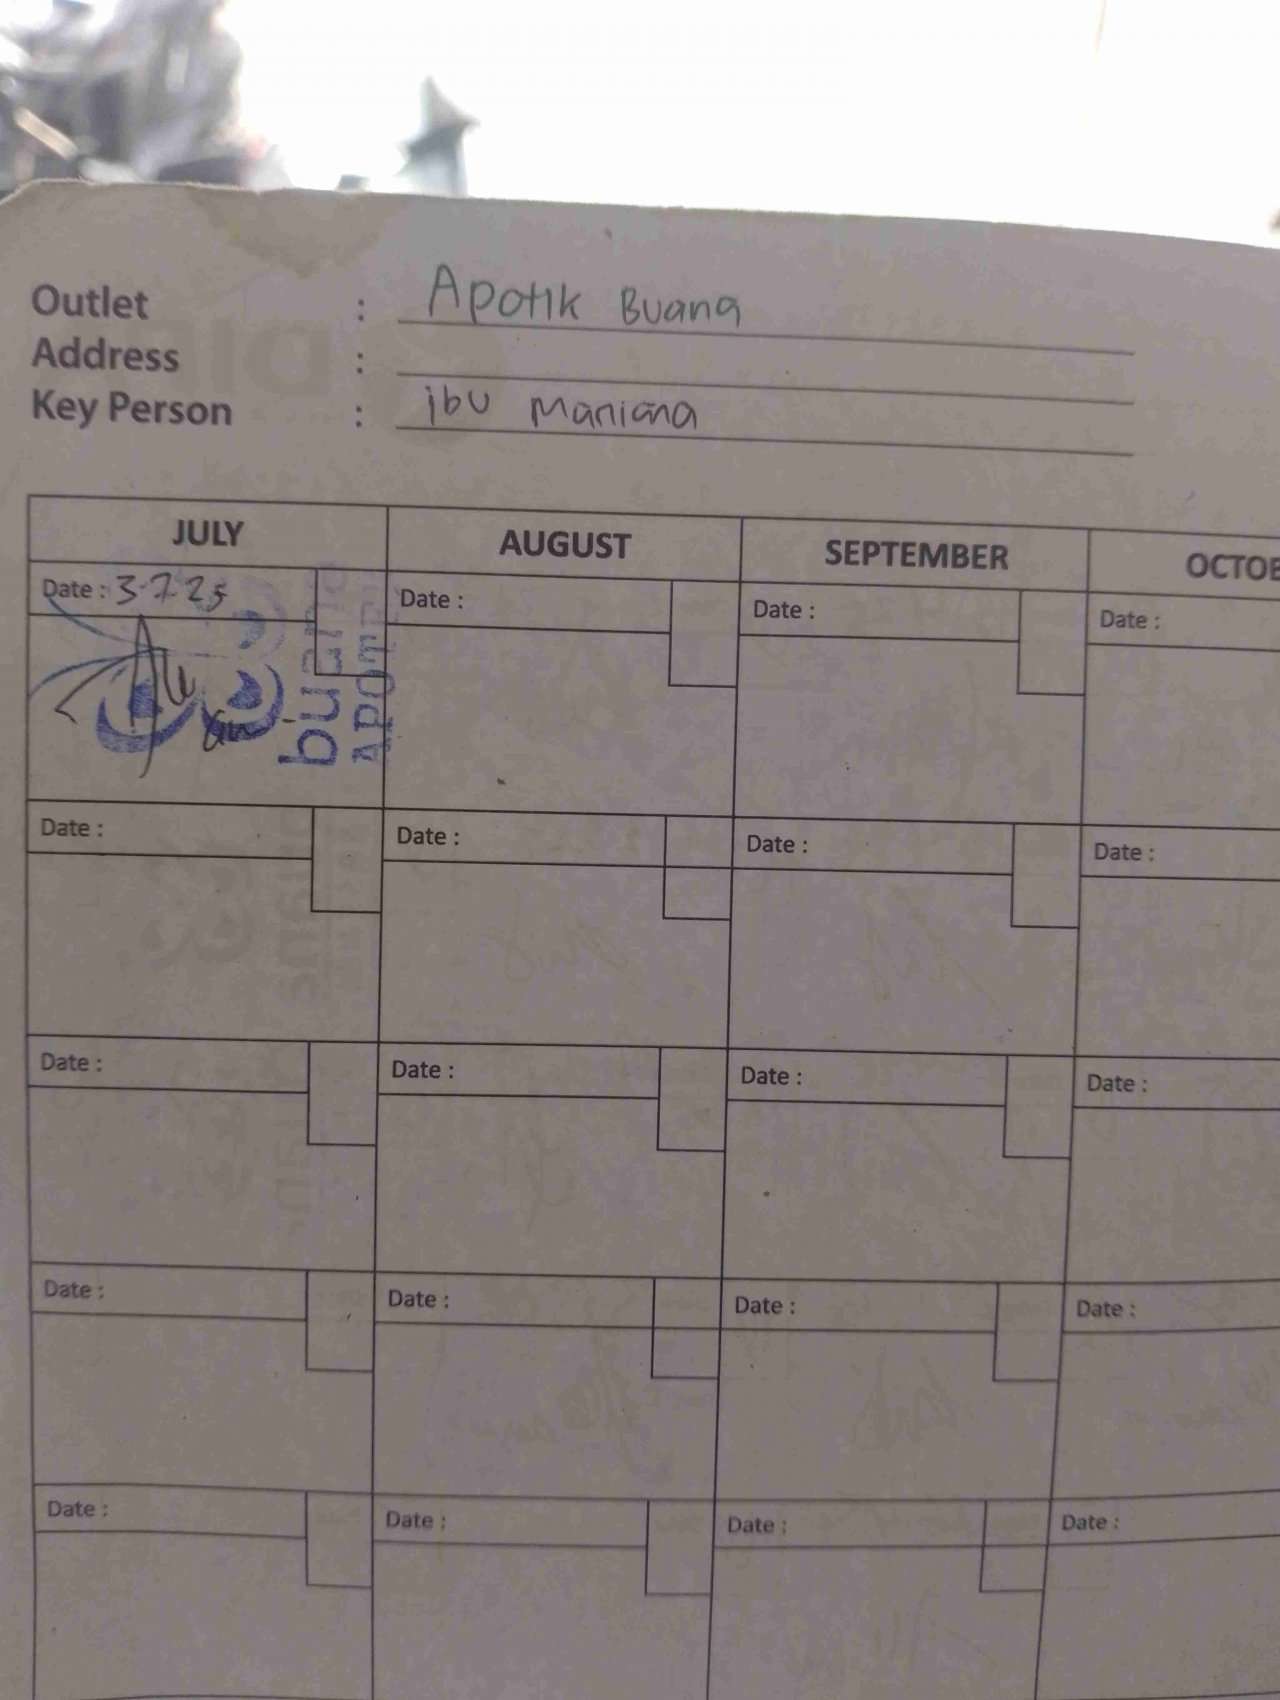 Outlet : Apotik Buana
Address :
Key Person : ibu Maniana
JULY AUGUST SEPTEMBER OCTOB
Date : 3-7-25 Date : Date : Date :
buana
APOTIK
Date : Date : Date : Date :
Date : Date : Date : Date :
Date : Date : Date : Date :
Date : Date : Date : Date :